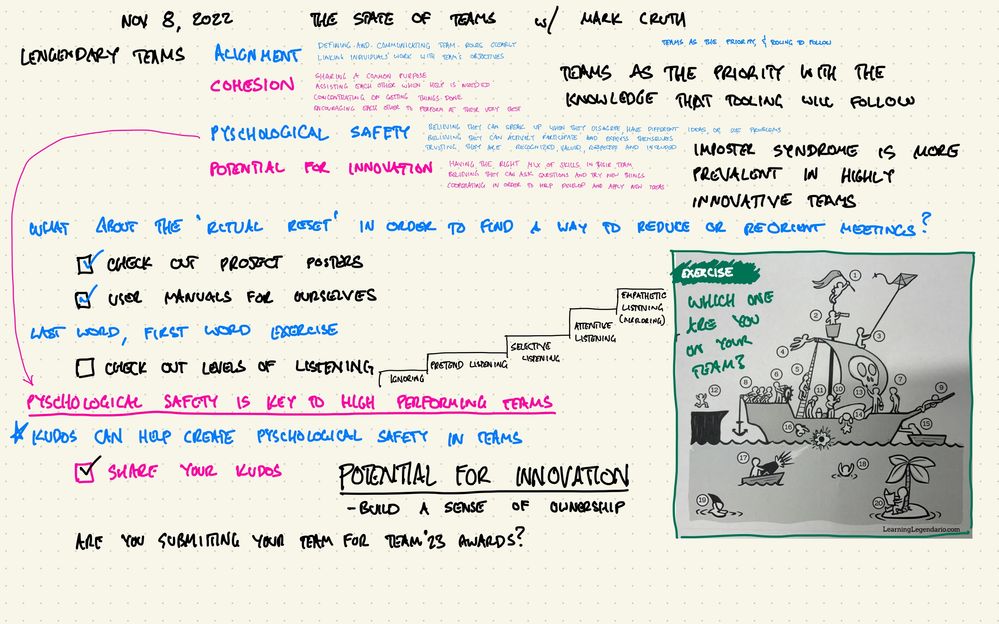 NOV 8, 2022 THE STATE OF TEAMS w/ MARK CRUTH
LENGENDARY TEAMS
ALIGNMENT
DEFINING AND COMMUNICATING TEAM ROLES CLEARLY
LINKING INDIVIDUALS' WORK WITH TEAM'S OBJECTIVES
COHESION
SHARING A COMMON PURPOSE
ASSISTING EACH OTHER WHEN HELP IS NEEDED
CONCENTRATING ON GETTING THINGS DONE
ENCOURAGING EACH OTHER TO PERFORM AT THEIR VERY BEST
TEAMS AS THE PRIORITY, & TOOLING TO FOLLOW
TEAMS AS THE PRIORITY WITH THE
KNOWLEDGE THAT TOOLING WILL FOLLOW
PYSCHOLOGICAL SAFETY
BELIEVING THEY CAN SPEAK UP WHEN THEY DISAGREE, HAVE DIFFERENT IDEAS, OR SEE PROBLEMS
BELIEVING THEY CAN ACTIVELY PARTICIPATE AND EXPRESS THEMSELVES
TRUSTING THEY ARE RECOGNIZED, VALUED, RESPECTED AND INCLUDED
POTENTIAL FOR INNOVATION
HAVING THE RIGHT MIX OF SKILLS IN THEIR TEAM
BELIEVING THEY CAN ASK QUESTIONS AND TRY NEW THINGS
COOPERATING IN ORDER TO HELP DEVELOP AND APPLY NEW IDEAS
IMPOSTER SYNDROME IS MORE
PREVALENT IN HIGHLY
INNOVATIVE TEAMS
WHAT ABOUT THE 'RITUAL RESET' IN ORDER TO FIND A WAY TO REDUCE OR REORIENT MEETINGS?
CHECK OUT PROJECT POSTERS
USER MANUALS FOR OURSELVES
LAST WORD, FIRST WORD EXERCISE
CHECK OUT LEVELS OF LISTENING
IGNORING
PRETEND LISTENING
SELECTIVE
LISTENING
ATTENTIVE
LISTENING
EMPATHETIC
LISTENING
(MIRRORING)
PYSCHOLOGICAL SAFETY IS KEY TO HIGH PERFORMING TEAMS
KUDOS CAN HELP CREATE PYSCHOLOGICAL SAFETY IN TEAMS
SHARE YOUR KUDOS
POTENTIAL FOR INNOVATION
- BUILD A SENSE OF OWNERSHIP
ARE YOU SUBMITTING YOUR TEAM FOR TEAM '23 AWARDS?
EXERCISE
WHICH ONE
ARE YOU
ON YOUR
TEAM?
1
2
3
4
5
6
7
8
9
10
11
12
13
14
15
16
17
18
19
20
LearningLegendario.com